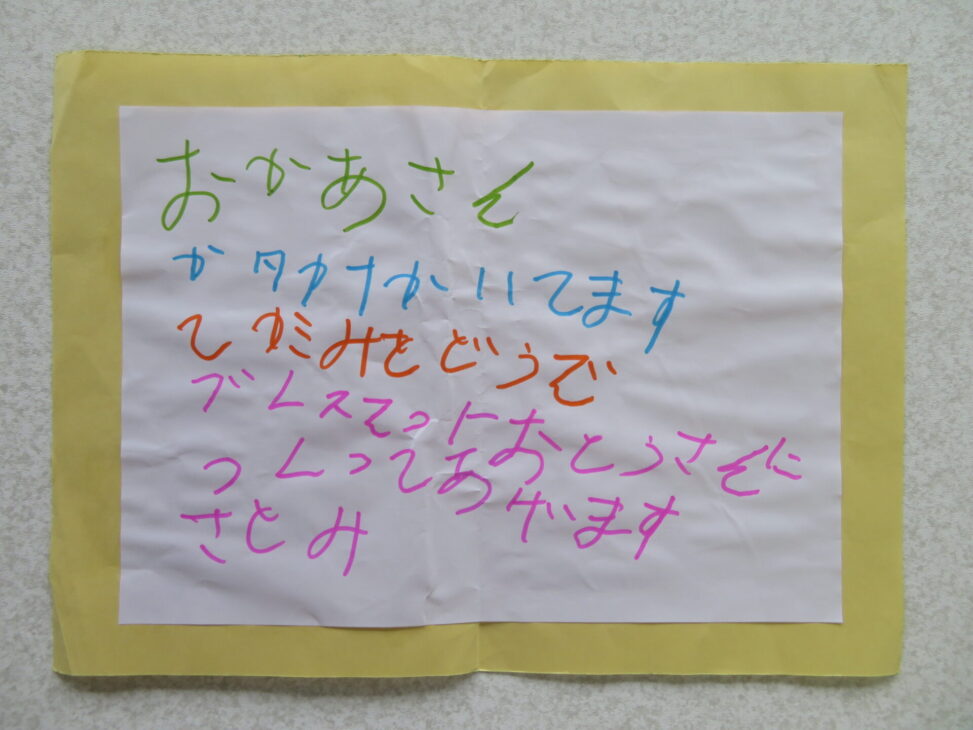 おかあさん
かタカナかいてます
てがミみをどうぞ
ブレスえっトおとうさんに
つくってあげます
さとみ